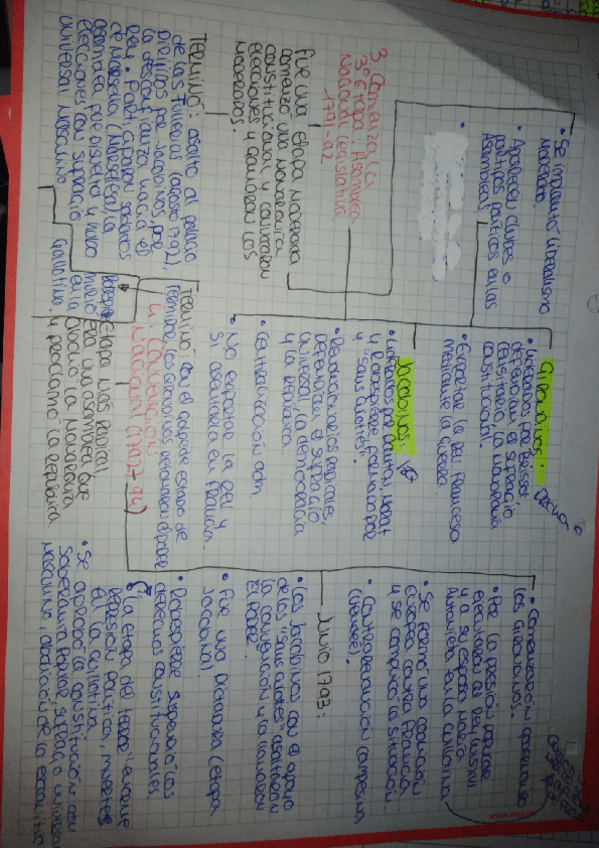 3. Comienza la
3ª Etapa: Asamblea
Nacional Legislativa
1791-92
Fue una etapa moderada
comenzó una monarquía
constitucional y convocaron
elecciones y ganaron los
moderados.
• Se implantó liberalismo
moderado.
• Aparecen clubes o
partidos políticos en las
Asambleas
TÉRMINO: asalto al palacio
de las Tullerías (agosto 1792),
dirigidos por Jacobinos, por
la desconfianza hacia el
rey. Participaron soldados
de Marsella (Marsellesa), la
asamblea
elecciones con sufragio
universal masculino.
Girondinos:
• liderados por Brissot,
defendían el sufragio
censitario, la monarquía
constitucional.
• Exportar la rev francesa
mediante la guerra.
Jacobinos:
• liderados por Danton, Marat
y Robespierre, formado por
y "sans culottes".
• Revolucionarios radicales,
defendían el sufragio
universal, la democracia
y la república.
• centralización adm.
• No exportar la rev y
si asentarla en Francia.
4. Convención
Nacional (1792-94)
Etapa más radical
era una asamblea que
abolió la monarquía
y proclamó la república.
Término: con el golpe de estado de
Termidor, los Girondinos retoman el poder
Robespierre murió
en la
Guillotina.
• Comenzarón gobernando
los Girondinos.
• Por la presión popular
ejecutaron al rey Luis XVI
y a su esposa María
Antonieta en la Guillotina
• Se formó una coalición
europea contra Francia
y se complicó la situación
• Contrarrevolución campesina
Junio 1793:
• Los Jacobinos con el apoyo
de los "sans culottes" asaltaron
la convención y
el poder.
• Fue una Dictadura (etapa
Jacobina).
• Robespierre suspendió los
derechos constitucionales.
• "La etapa del terror"
represión política, muertes
en la guillotina.
• Se aprobó la constitución con
soberanía popular, sufragio universal
masculino, abolición de la esclavitud